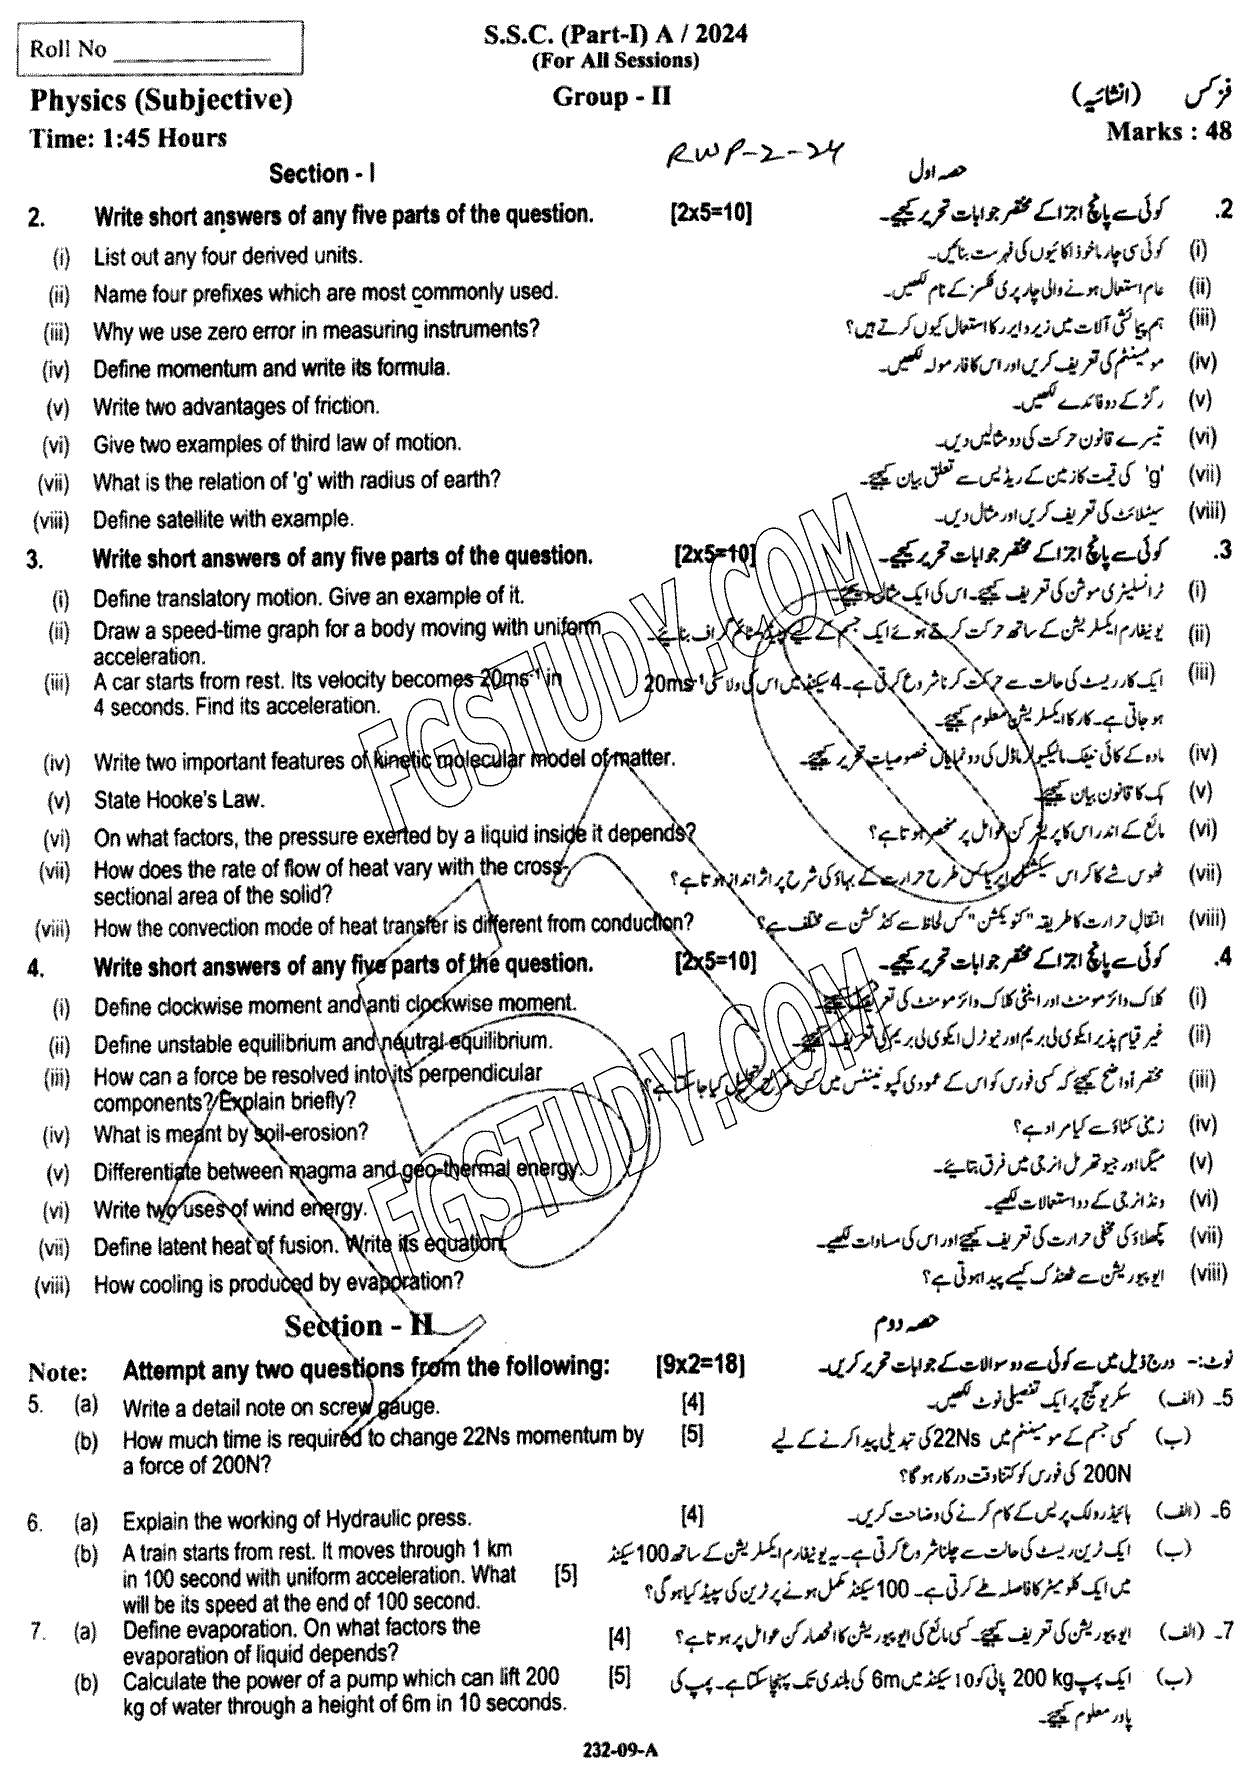 Roll No
S.S.C. (Part-I) A / 2024
(For All Sessions)
Physics (Subjective) Group - II فزکس (انشائیہ)
Time: 1:45 Hours Marks : 48
RWP-2-24
Section - I حصہ اول
2. Write short answers of any five parts of the question. [2x5=10] کوئی سے پانچ اجزا کے مختصر جوابات تحریر کیجیے۔ .2
(i) List out any four derived units. کوئی سی چار ماخوذ اکائیوں کی فہرست بنائیں۔ (i)
(ii) Name four prefixes which are most commonly used. عام استعمال ہونے والی چار پری فکسز کے نام لکھیں۔ (ii)
(iii) Why we use zero error in measuring instruments? ہم پیمائشی آلات میں زیرو ایرر کا استعمال کیوں کرتے ہیں؟ (iii)
(iv) Define momentum and write its formula. مومینٹم کی تعریف کریں اور اس کا فارمولہ لکھیں۔ (iv)
(v) Write two advantages of friction. رگڑ کے دو فائدے لکھیں۔ (v)
(vi) Give two examples of third law of motion. تیسرے قانون حرکت کی دو مثالیں دیں۔ (vi)
(vii) What is the relation of 'g' with radius of earth? 'g' کی قیمت کا زمین کے ریڈیس سے تعلق بیان کیجیے۔ (vii)
(viii) Define satellite with example. سیٹلائٹ کی تعریف کریں اور مثال دیں۔ (viii)
3. Write short answers of any five parts of the question. [2x5=10] کوئی سے پانچ اجزا کے مختصر جوابات تحریر کیجیے۔ .3
(i) Define translatory motion. Give an example of it. ٹرانسلیٹری موشن کی تعریف کیجیے۔ اس کی ایک مثال دیجیے۔ (i)
(ii) Draw a speed-time graph for a body moving with uniform یونیفارم ایکسلریشن کے ساتھ حرکت کرتے ہوئے ایک جسم کے لیے سپیڈ ٹائم گراف بنائیے۔ (ii)
acceleration.
(iii) A car starts from rest. Its velocity becomes 20ms⁻¹ in ایک کار ریسٹ کی حالت سے حرکت کرنا شروع کرتی ہے۔ 4 سیکنڈ میں اس کی ولاسٹی 20ms⁻¹ (iii)
4 seconds. Find its acceleration. ہو جاتی ہے۔ کار کا ایکسلریشن معلوم کیجیے۔
(iv) Write two important features of kinetic molecular model of matter. مادہ کے کائی نیٹک مالیکیولر ماڈل کی دو نمایاں خصوصیات تحریر کیجیے۔ (iv)
(v) State Hooke's Law. ہک کا قانون بیان کیجیے۔ (v)
(vi) On what factors, the pressure exerted by a liquid inside it depends? مائع کے اندر اس کا پریشر کن عوامل پر منحصر ہوتا ہے؟ (vi)
(vii) How does the rate of flow of heat vary with the cross- ٹھوس شے کا کراس سیکشنل ایریا کس طرح حرارت کے بہاؤ کی شرح پر اثر انداز ہوتا ہے؟ (vii)
sectional area of the solid?
(viii) How the convection mode of heat transfer is different from conduction? انتقال حرارت کا طریقہ "کنویکشن" کس لحاظ سے کنڈکشن سے مختلف ہے؟ (viii)
4. Write short answers of any five parts of the question. [2x5=10] کوئی سے پانچ اجزا کے مختصر جوابات تحریر کیجیے۔ .4
(i) Define clockwise moment and anti clockwise moment. کلاک وائز مومنٹ اور اینٹی کلاک وائز مومنٹ کی تعریف کیجیے۔ (i)
(ii) Define unstable equilibrium and neutral equilibrium. غیر قیام پذیر ایکوی لی بریم اور نیوٹرل ایکوی لی بریم کی تعریف کیجیے۔ (ii)
(iii) How can a force be resolved into its perpendicular مختصر اً واضح کیجیے کہ کسی فورس کو اس کے عمودی کمپونینٹس میں کس طرح تحلیل کیا جا سکتا ہے؟ (iii)
components? Explain briefly?
(iv) What is meant by soil-erosion? زمینی کٹاؤ سے کیا مراد ہے؟ (iv)
(v) Differentiate between magma and geo-thermal energy. میگما اور جیوتھرمل انرجی میں فرق بتائیے۔ (v)
(vi) Write two uses of wind energy. ونڈ انرجی کے دو استعمالات لکھیے۔ (vi)
(vii) Define latent heat of fusion. Write its equation. پگھلاؤ کی مخفی حرارت کی تعریف کیجیے اور اس کی مساوات لکھیے۔ (vii)
(viii) How cooling is produced by evaporation? ایوپوریشن سے ٹھنڈک کیسے پیدا ہوتی ہے؟ (viii)
Section - II حصہ دوم
Note: Attempt any two questions from the following: [9x2=18] نوٹ:- درج ذیل میں سے کوئی سے دو سوالات کے جوابات تحریر کریں۔
5. (a) Write a detail note on screw gauge. [4] سکریو گیج پر ایک تفصیلی نوٹ لکھیں۔ (الف) 5۔
(b) How much time is required to change 22Ns momentum by [5] کسی جسم کے مومینٹم میں 22Ns کی تبدیلی پیدا کرنے کے لیے (ب)
a force of 200N? 200N کی فورس کو کتنا وقت درکار ہوگا؟
6. (a) Explain the working of Hydraulic press. [4] ہائیڈرولک پریس کے کام کرنے کی وضاحت کریں۔ (الف) 6۔
(b) A train starts from rest. It moves through 1 km ایک ٹرین ریسٹ کی حالت سے چلنا شروع کرتی ہے۔ یہ یونیفارم ایکسلریشن کے ساتھ 100 سیکنڈ (ب)
in 100 second with uniform acceleration. What [5] میں ایک کلومیٹر کا فاصلہ طے کرتی ہے۔ 100 سیکنڈ مکمل ہونے پر ٹرین کی سپیڈ کیا ہوگی؟
will be its speed at the end of 100 second.
7. (a) Define evaporation. On what factors the [4] ایوپوریشن کی تعریف کیجیے۔ کسی مائع کی ایوپوریشن کا انحصار کن عوامل پر ہوتا ہے؟ (الف) 7۔
evaporation of liquid depends?
(b) Calculate the power of a pump which can lift 200 [5] ایک پمپ 200 kg پانی کو 10 سیکنڈ میں 6m کی بلندی تک پہنچا سکتا ہے۔ پمپ کی (ب)
kg of water through a height of 6m in 10 seconds. پاور معلوم کیجیے۔
232-09-A
FGSTUDY.COM
FGSTUDY.COM